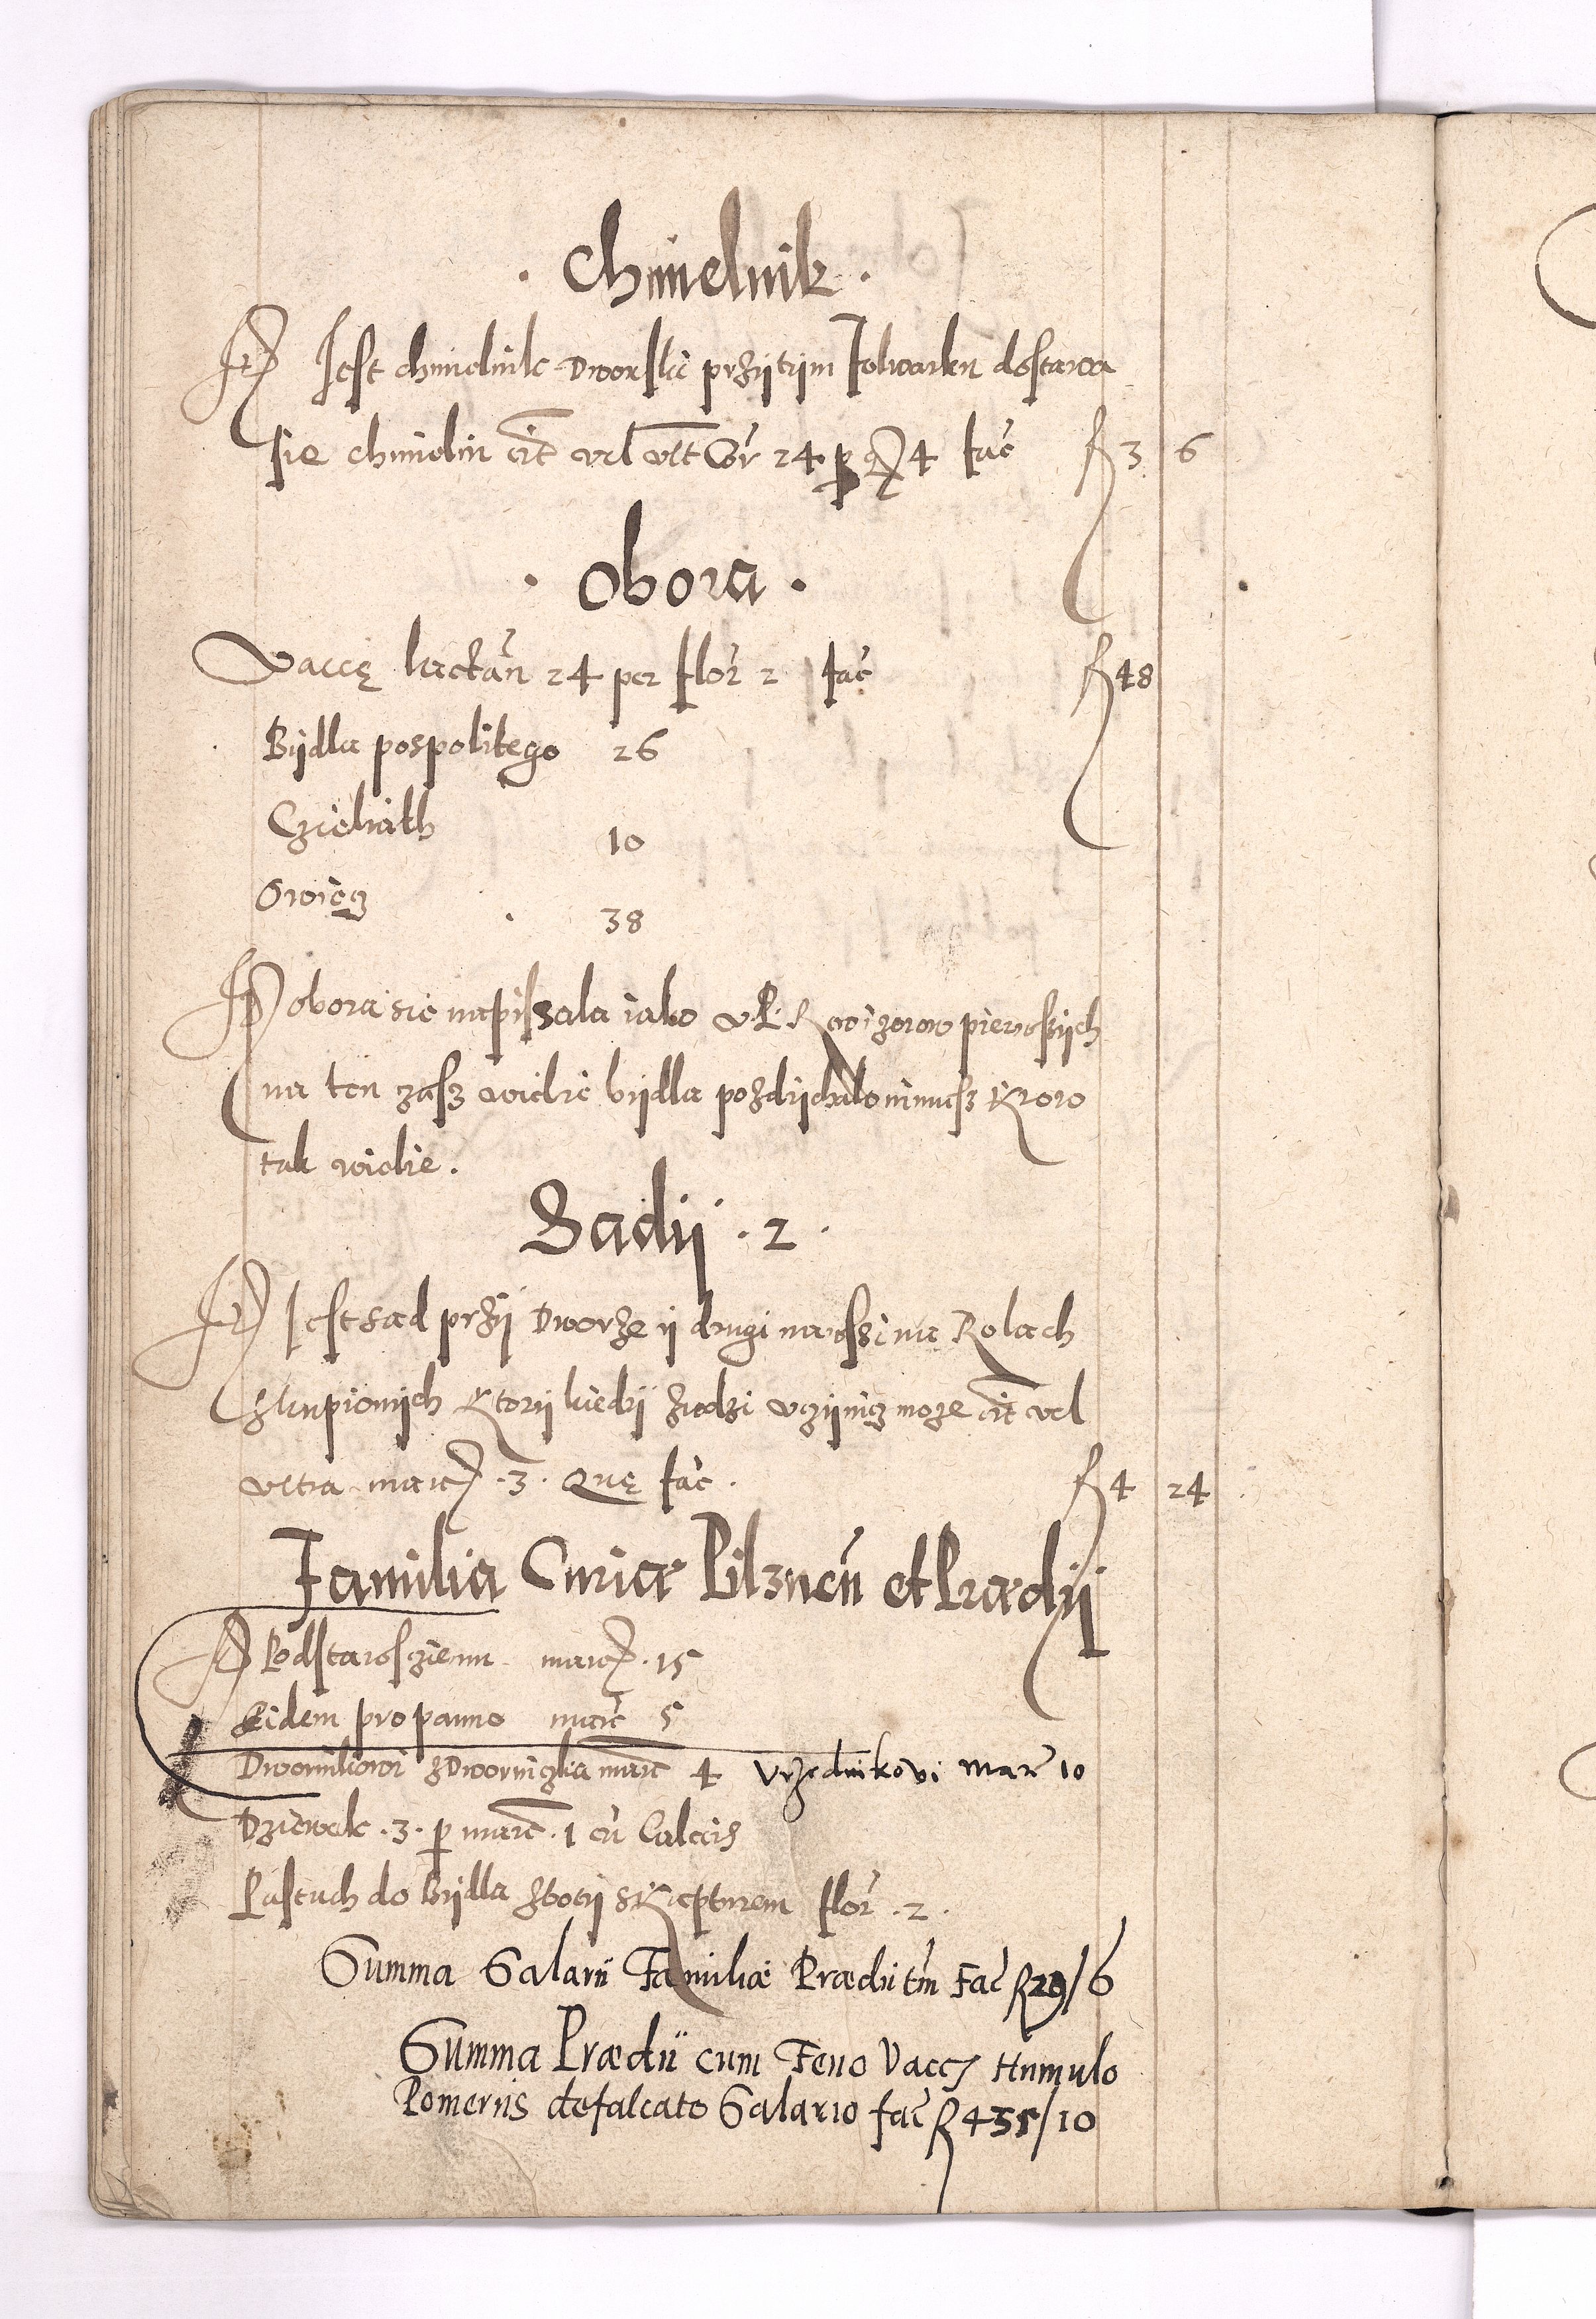 · Chmielnik ·
It Jest chmielnik Dworski przÿtÿm folwarku dostawa
sie chmielu cit vel vlt Cor 24 p gr 4 fac fl 3 6
· Obora ·
Vaccę lactan 24 per flor 2 fac fl 48
Bÿdla pospolitego 26
Czieliath 10
Owięcz 38
It obora sie napisala iako v P. Rewizorow pierwszÿch
na ten zasz wielie bÿdla pozdÿchalo nimasz Krow
tak wielie.
Sadÿ · 2 ·
It Jest sad przÿ Dworze ÿ drugi na wssi na Rolach
zkupionÿch Ktorÿ kiedÿ zrodzi vczÿnicz moze cit vel
vltra marc · 3 · Quę fac · fl 4 24
Familia Curiæ Pilznen et Prædÿ
It Podstarosciemu marc · 15
Eidem pro panno marc 5
Dwornikowi z Dworniczką marc 4 Vrzednikovi Mar 10
Dziewek · 3 · p marc · 1 cu Calceis
Pastuch do Bÿdla zbotÿ s Kapturem flor · 2 ·
Summa Salarii Familiæ Prædii tm Fac fl 29/6
Summa Prædii cum Feno Vaccis Humulo
Pomeriis defalcato Salario fac fl 435/10